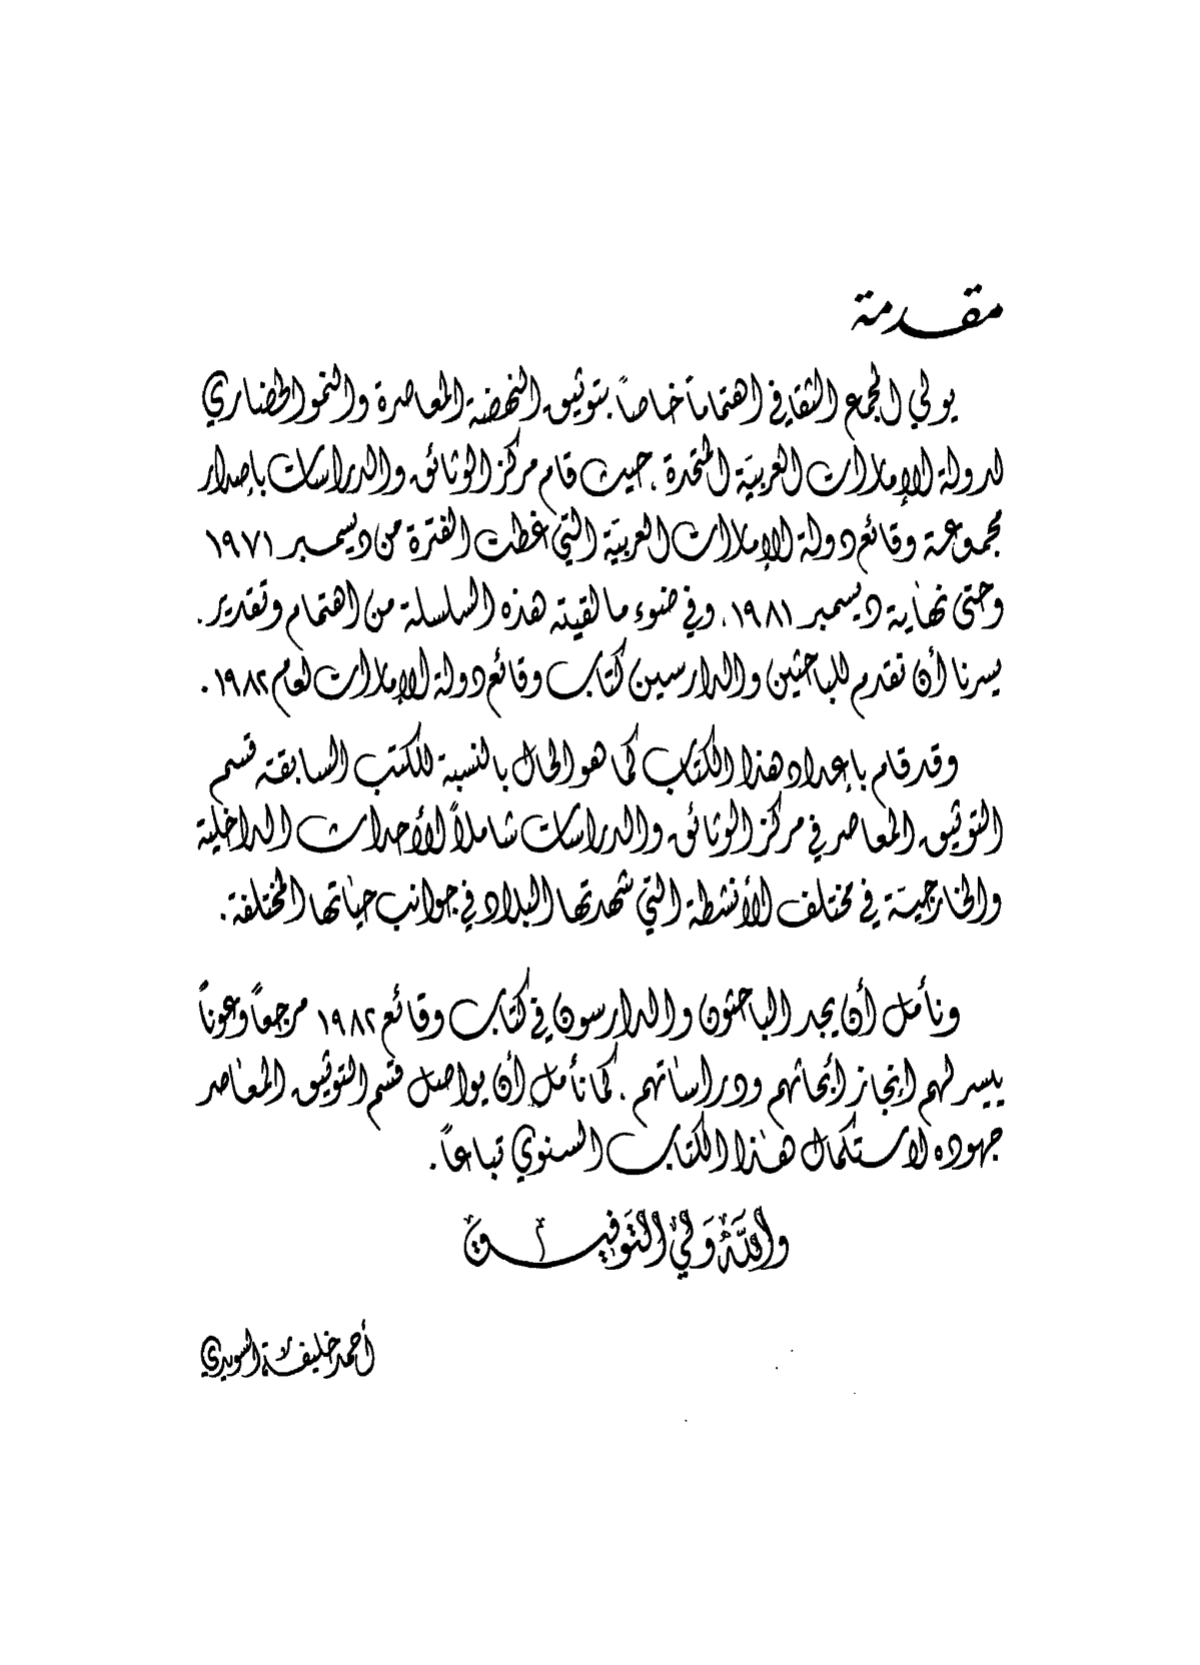 مقدمة
يولي المجمع الثقافي اهتماماً خاصاً بتوثيق النهضة المعاصرة والنمو الحضاري
لدولة الإمارات العربية المتحدة ، حيث قام مركز الوثائق والدراسات بإصدار
مجموعة وقائع دولة الإمارات العربية التي غطت الفترة من ديسمبر ١٩٧١
وحتى نهاية ديسمبر ١٩٨١ ، وفي ضوء ما لقيته هذه السلسلة من اهتمام وتقدير .
يسرنا أن تقدم للباحثين والدارسين كتاب وقائع دولة الإمارات لعام ١٩٨٢ .
وقد قام بإعداد هذا الكتاب كما هو الحال بالنسبة للكتب السابقة قسم
التوثيق المعاصر في مركز الوثائق والدراسات شاملاً الأحداث الداخلية
والخارجية في مختلف الأنشطة التي شهدتها البلاد في جوانب حياتها المختلفة .
ونأمل أن يجد الباحثون والدارسون في كتاب وقائع ١٩٨٢ مرجعاً وعوناً
ييسر لهم إنجاز أبحاثهم ودراساتهم . كما نأمل أن يواصل قسم التوثيق المعاصر
جهوده لاستكمال هذا الكتاب السنوي تباعاً .
والله ولي التوفيق
أحمد خليفة السويدي